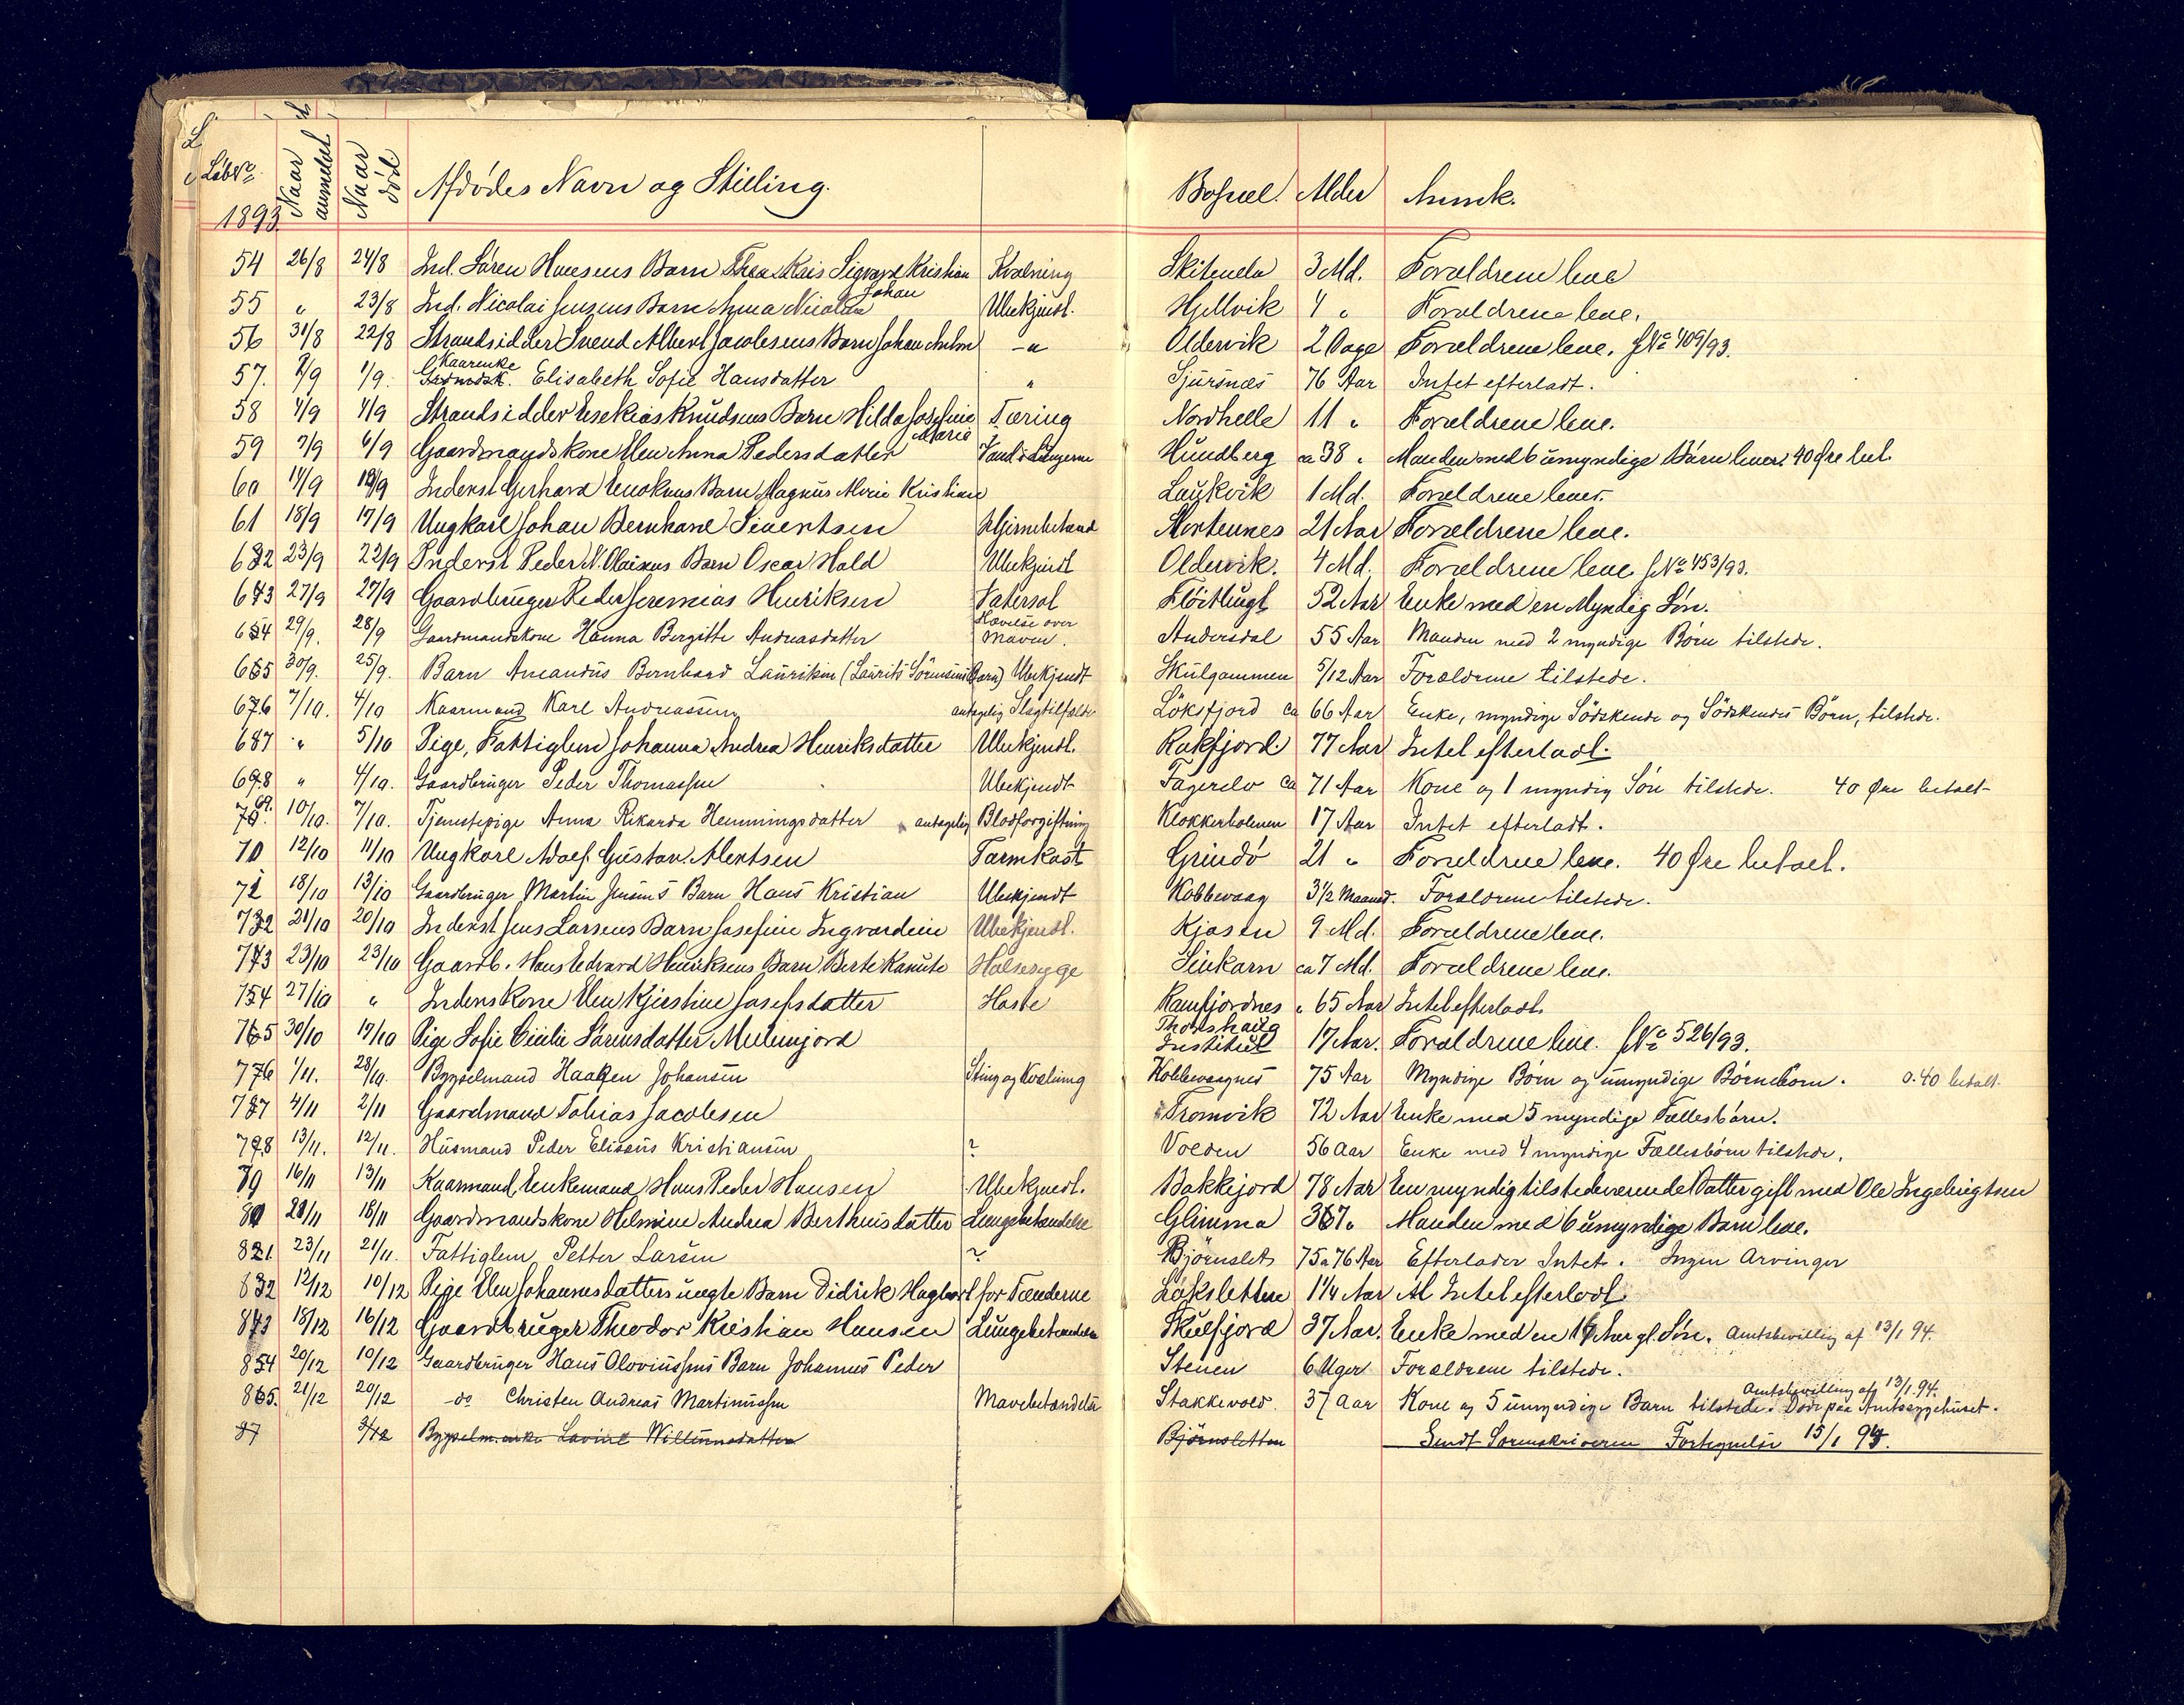 Löbe No. Naar anmeldt Naar död. Afdödes Navn og Stilling. Bopæl. Alder Anmk.
1893.
54 26/8 24/8 Ind. Sören Hansens Barn Kais Sigvard Kristian Kvælning 3 Md. Forældrene leve
Johan
55 " 23/8 Ind. Nicolai Jensens Barn Anna Nicoline Ubekjendt. Hjellvik 4 " Forældrene leve.
56 31/8 22/8 Strandsidder Svend Albert Jacobsens Barn Johan -" Oldervik 2 Dage Forældrene leve. JNo 409/93.
Kaarenke
57. 2/9 1/9. Elisabeth Sofie Hansdatter " Sjursnæs 76 Aar Intet efterladt.
58 4/9 4/9 Strandsidder Esekias Knudsens Barn Hilda Josefine Tæring Nordhelle 11 " Forældrene leve.
Marie
59 7/9 6/9 Gaardmandskone Elen Anna Pedersdatter Vand i Lungerne Hundberg ca 38 " Manden med 6 umyndige Börn lever. 40 Öre bet.
60 14/9 Inderst Gerhard Enoksens Barn Magnus Kristian Laukvik 1 Md. Forældrene lever.
61 18/9 17/9 Ungkarl Johan Bernhard Sivertsen Hjernebetænd Mortennes 21 Aar Forældrene leve.
62 23/9 22/9 Inderst Peder N. Olaisens Barn Oscar Hald Ubekjendt Oldervik. 4 Md. Forældrene leve JNo 453/93.
63 27/9 27/9 Gaardbruger Peder Jeremias Henriksen Vatersot 52 Aar Enke med en Myndig Sön.
64 29/9. 28/9 Gaardmandskone Hanna Bergitte Andreasdatter Hævelse over Maven. Andersdal 55 Aar Manden med 2 myndige Börn tilstede.
65 30/9. 25/9. Barn Amandus Bernhard Lauritsen (Laurits Sörensens Barn) Ubekjendt Skulgammen 5/12 Aar Forældrene tilstede.
66 7/10. 4/10 Kaarmand Karl Andreassen antagelig Slagtilfælde Löksfjord ca 66 Aar Enke, myndige Södskende og Södskendes Börn, tilstede.
67 " 5/10 Pige, Fattiglem Johanna Andrea Henriksdatter Ubekjendt. Rakfjord. 77 Aar Intet efterladt.
68 " 4/10. Gaardbruger Peder Thomassen Ubekjendt Fagerelv ca 71 Aar Kone og 1 myndig Sön tilstede. 40 Öre betalt
69. 10/10. 7/10. Tjenestepige Anna Rikarda Hemmingsdatter antagelig Blodforgiftning Klokkerholmen 17 Aar Intet efterladt.
70 12/10 11/10 Ungkarl Adolf Gustav Alentsen Tarmkast Grindö 21 " Forældrene leve. 40 Öre betalt.
71 18/10 13/10 Gaardbruger Martin Jensens Barn Hans Kristian Ubekjendt Kobbevaag 3 1/2 Maaned. Forældrene tilstede.
72 21/10 20/10 Inderst Jens Larsens Barn Josefine Ingvardine Ubekjendt. Kjosen 9 Md. Forældrene leve.
73 23/10 23/10 Gaardb. Hans Edvard Henriksens Barn Berte Kanute Halssyge ca 7 Md. Forældrene leve.
74 27/10 " Inderskone Elen Kjerstine Josefsdatter Hoste Ramfjordnes " 65 Aar Intet efterladt.
75 30/10 19/10 Pige Sofie Cicilie Sörensdatter Thomshaug Institut 17 Aar. Forældrene leve. JNo 526/93.
76 1/11. 28/10. Bygselmand Haagen Johansen Sting og Kvælning Kobbevaagnes 75 Aar Myndige Börn og umyndige Börnebörn. 0.40 betalt.
77 4/11 2/11 Gaardmand Tobias Jacobsen Tromvik 72 Aar Enke med 5 myndige Fællesbörn.
78 13/11. 12/11. Husmand Peder Eliseus Kristiansen ? Volden 56 Aar Enke med 4 myndige Fællesbörn tilstede.
79 16/11 13/11 Kaarmand, Enkemand Hans Peder Hansen Ubekjendt. Bakkejord 78 Aar En myndig tilstedeværende Datter gift med Ole Ingebrigtsen
80 18/11 Gaardmandskone Helmine Andrea Bertheusdatter Lungebetændelse Glimma 37 " Manden med 6 umyndige Barn leve.
81 23/11 21/11. Fattiglem Petter Larsen ? Björnslet 75 a 76 Aar Efterlader Intet. Ingen Arvinger
82 12/12 10/12 Pige Elen Johannesdatters uægte Barn Didrik Hagbart for Tænderne Lökslettene 1 1/4 Aar At Intet efterladt.
83 18/12 16/12 Gaardbruger Theodor Kristian Hansen Lungebetændelse Skulfjord 37 Aar. Enke med en Aar gl. Sön. Amtsbevilling af 13/1 94.
84 20/12 10/12 Gaardbruger Hans Oloviussens Barn Johannes Peder Stenen 6 Uger Forældrene tilstede.
Amtsbevilling af 13/1. 94.
85. 21/12 20/12 do Christen Andreas Martinussen Mavebetændelse Stakkevold. 37 Aar Kone og 5 umyndige Barn tilstede. Död paa Amtssygehuset.
87 3/12 Bygselm.enke Lavine Willumsdatter Björnsletten Sendt Sorenskriveren Fortegnelse 15/1 94.